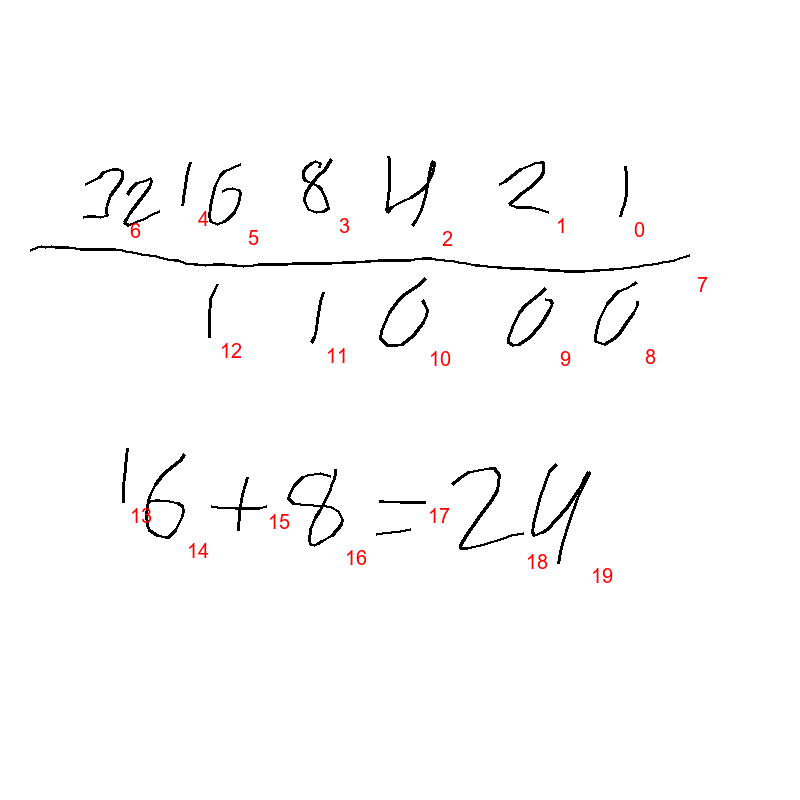 32 16 8 4 2 1
6 4 5 3 2 1 0
7
1 1 0 0 0
12 11 10 9 8
16 + 8 = 24
13 14 15 16 17 18 19